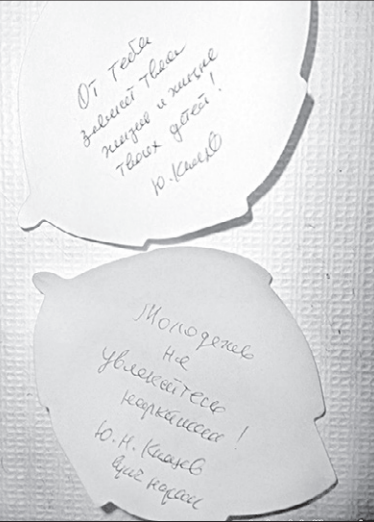 От тебя
зависит твоя
жизнь и жизнь
твоих детей!
Ю. Князев
Молодежь
не
увлекайтесь
наркотиками!
Ю. Н. Князев
врач нарколог